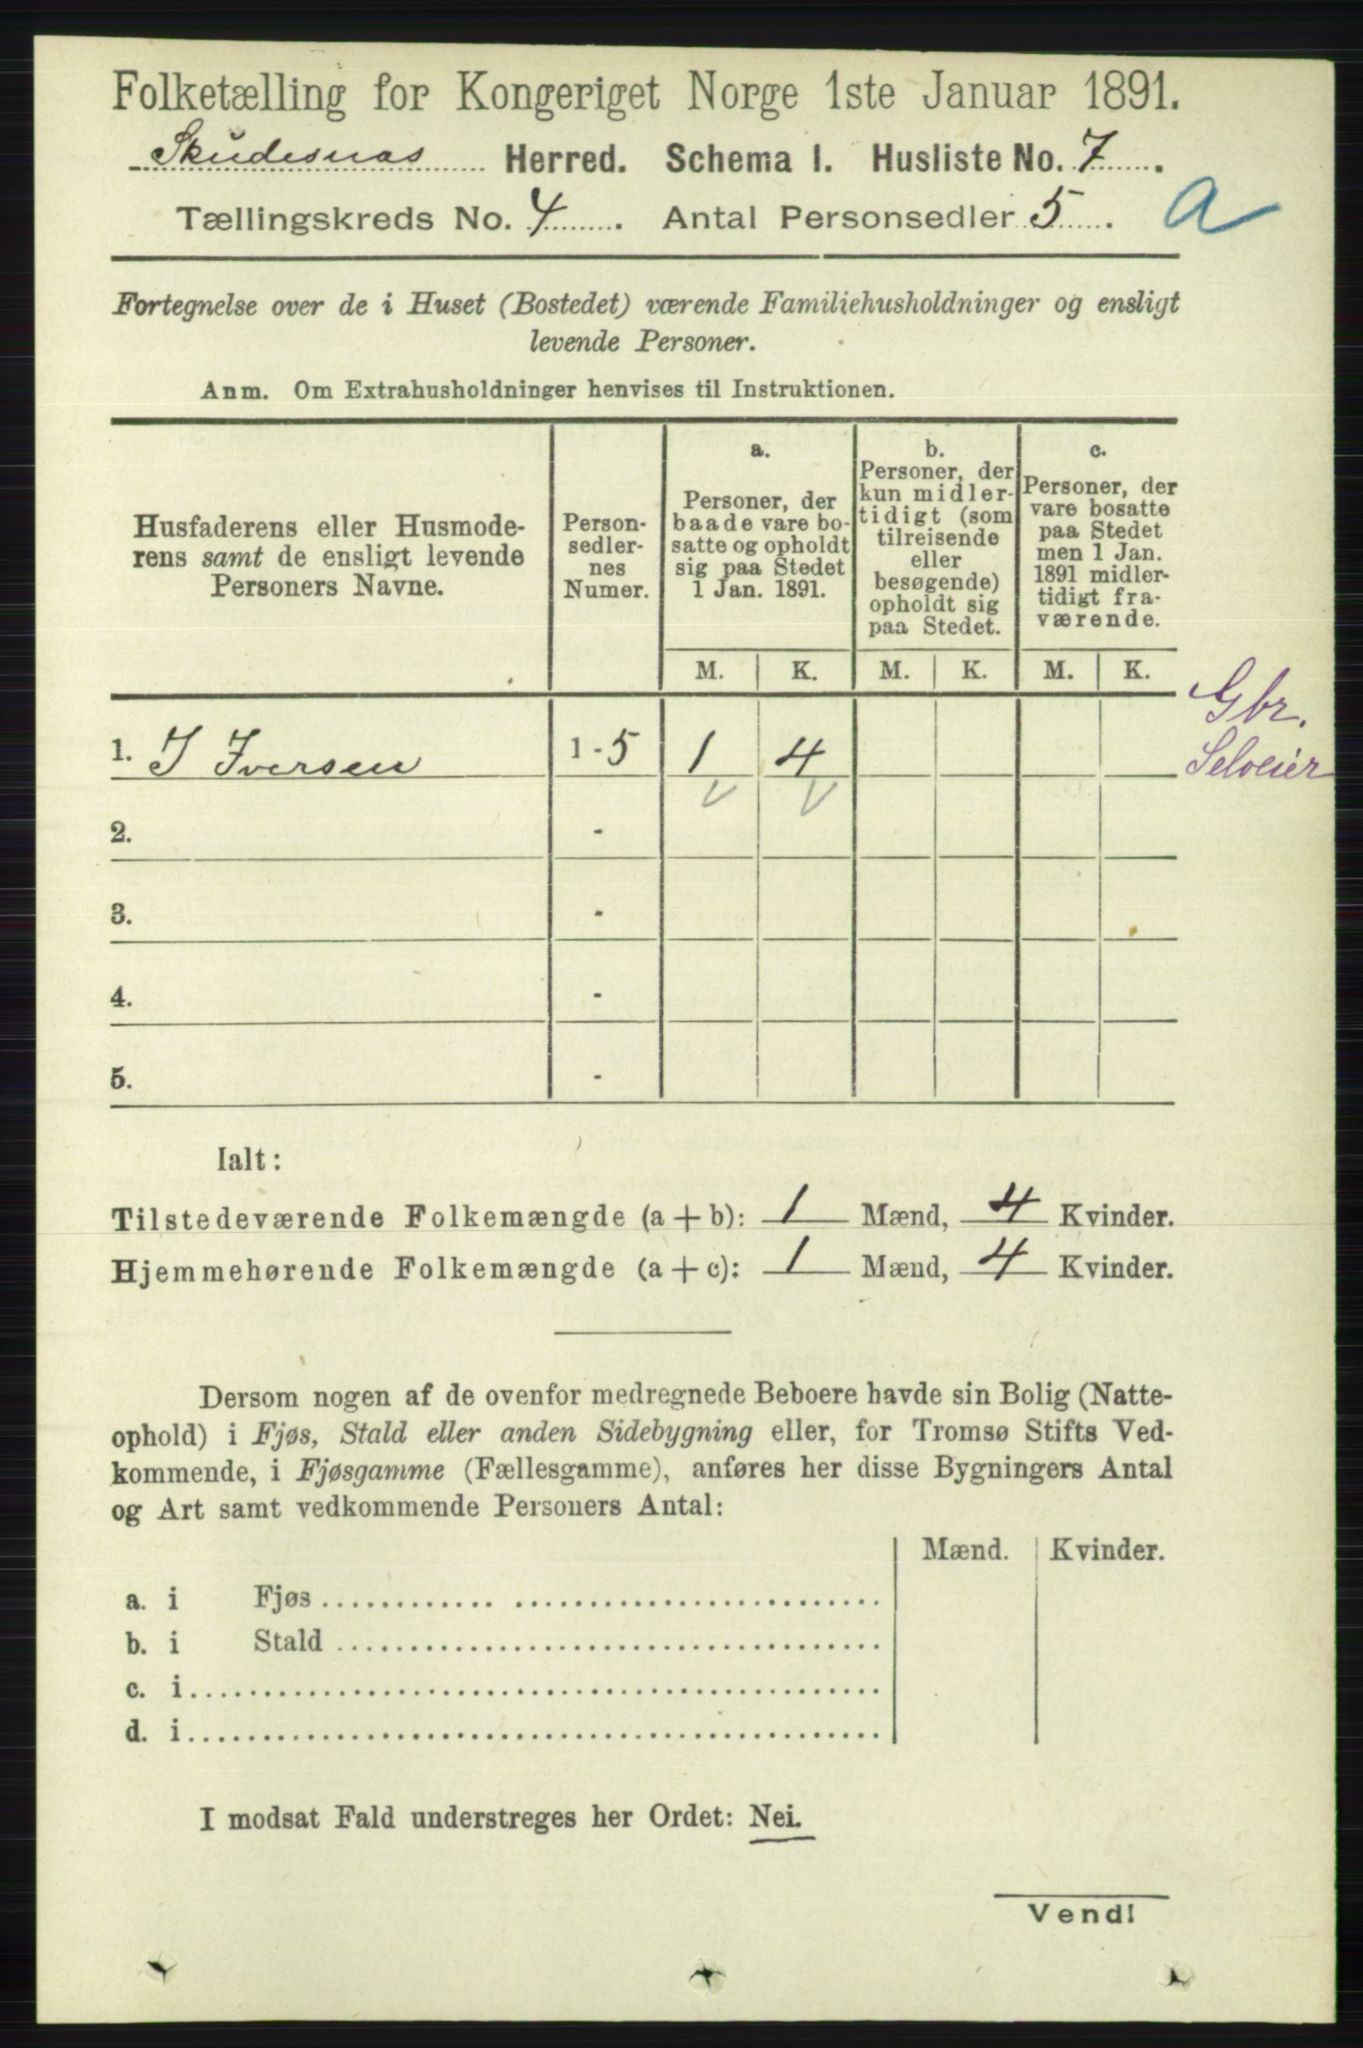 Folketælling for Kongeriget Norge 1ste Januar 1891.
Skudesnæs Herred. Schema I. Husliste No. 7.
Tællingskreds No. 4. Antal Personsedler 5. a
Fortegnelse over de i Huset (Bostedet) værende Familiehusholdninger og ensligt
levende Personer.
Anm. Om Extrahusholdninger henvises til Instruktionen.
Husfaderens eller Husmode-
rens samt de ensligt levende
Personers Navne.
Person-
sedler-
nes
Numer.
a.
Personer, der
baade vare bo-
satte og opholdt
sig paa Stedet
1 Jan. 1891.
b.
Personer, der
kun midler-
tidigt (som
tilreisende
eller
besøgende)
opholdt sig
paa Stedet.
c.
Personer, der
vare bosatte
paa Stedet
men 1 Jan.
1891 midler-
tidigt fra-
værende.
M. K. M. K. M. K.
Gbr.
Seloeier
1. I Iversen 1 - 5 1 4
2. -
3. -
4. -
5. -
Ialt:
Tilstedeværende Folkemængde (a + b): 1 Mænd, 4 Kvinder.
Hjemmehørende Folkemængde (a + c): 1 Mænd, 4 Kvinder.
Dersom nogen af de ovenfor medregnede Beboere havde sin Bolig (Natte-
ophold) i Fjøs, Stald eller anden Sidebygning eller, for Tromsø Stifts Ved-
kommende, i Fjøsgamme (Fællesgamme), anføres her disse Bygningers Antal
og Art samt vedkommende Personers Antal:
Mænd. Kvinder.
a. i Fjøs
b. i Stald
c. i
d. i
I modsat Fald understreges her Ordet: Nei.
Vend!